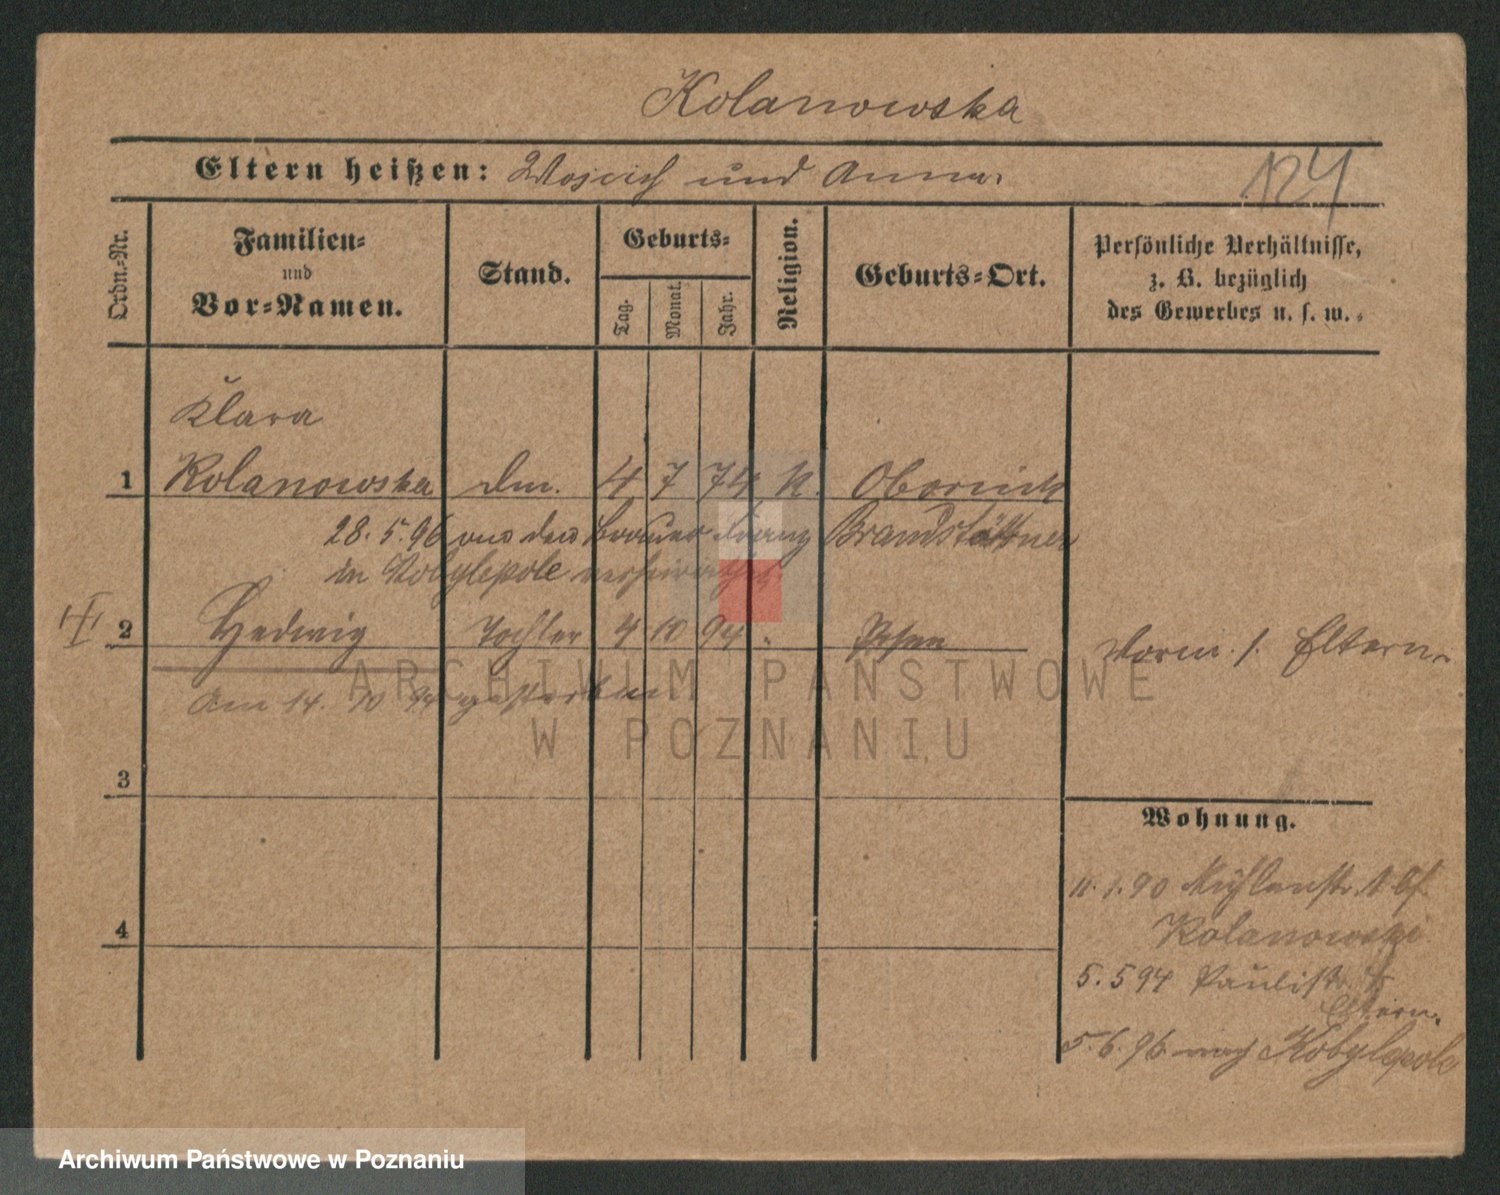 Kolanowska
Eltern heißen: Wojcich und Anna.
124
Ordn.-Nr.
Familien-
und
Vor-Namen.
Stand.
Geburts-
Tag.
Monat.
Jahr.
Religion.
Geburts-Ort.
Persönliche Verhältnisse,
z. B. bezüglich
des Gewerbes u. s. w.
Klara
1 Kolanowska 4 7 74 K. Obornik
28.5.96 aus den Brauer Franz Brandstättner
in Kobylepole verheirathet
2 Hedwig Tochter 4 10 94 Posen
Vorm. s. Eltern.
Am 14. 10 94 gestorben
3
Wohnung.
4
1.90 Mühlenstr.
Kolanowski
5.5 94 Paulistr.
Eltern.
5.6.96 nach Kobylepole
ARCHIWUM PAŃSTWOWE
W POZNANIU
Archiwum Państwowe w Poznaniu